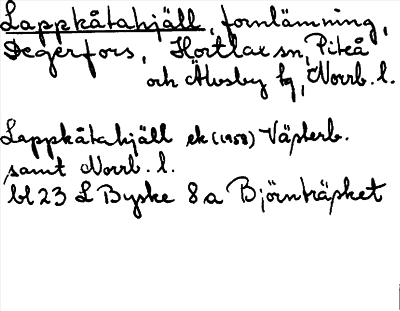 Lappkåtahjäll, fornlämning,
Degerfors, Hortlax sn, Piteå
och Älvsby kg, Norrb. l.
Lappkåtahjäll ek (1958) Västerb.
samt Norrb. l.
bl 23 L Byske 8 a Björnträsket